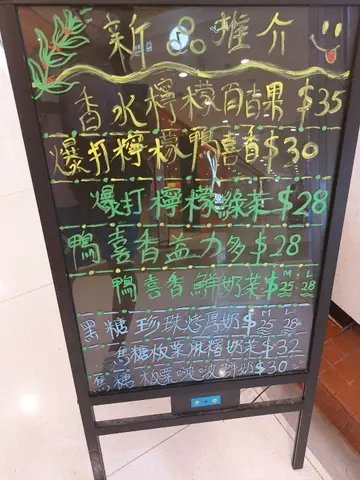 新品推介
香水檸檬百香果 $35
爆打檸檬鴨喜香 $30
爆打檸檬綠茶 $28
鴨喜香益力多 $28
鴨喜香鮮奶茶 $ M 25 L 28
黑糖珍珠烤厚奶 $ M 25 L 28
黑糖板菜麻糬奶茶 $32
黑糖板菜啵啵鮮奶 $30